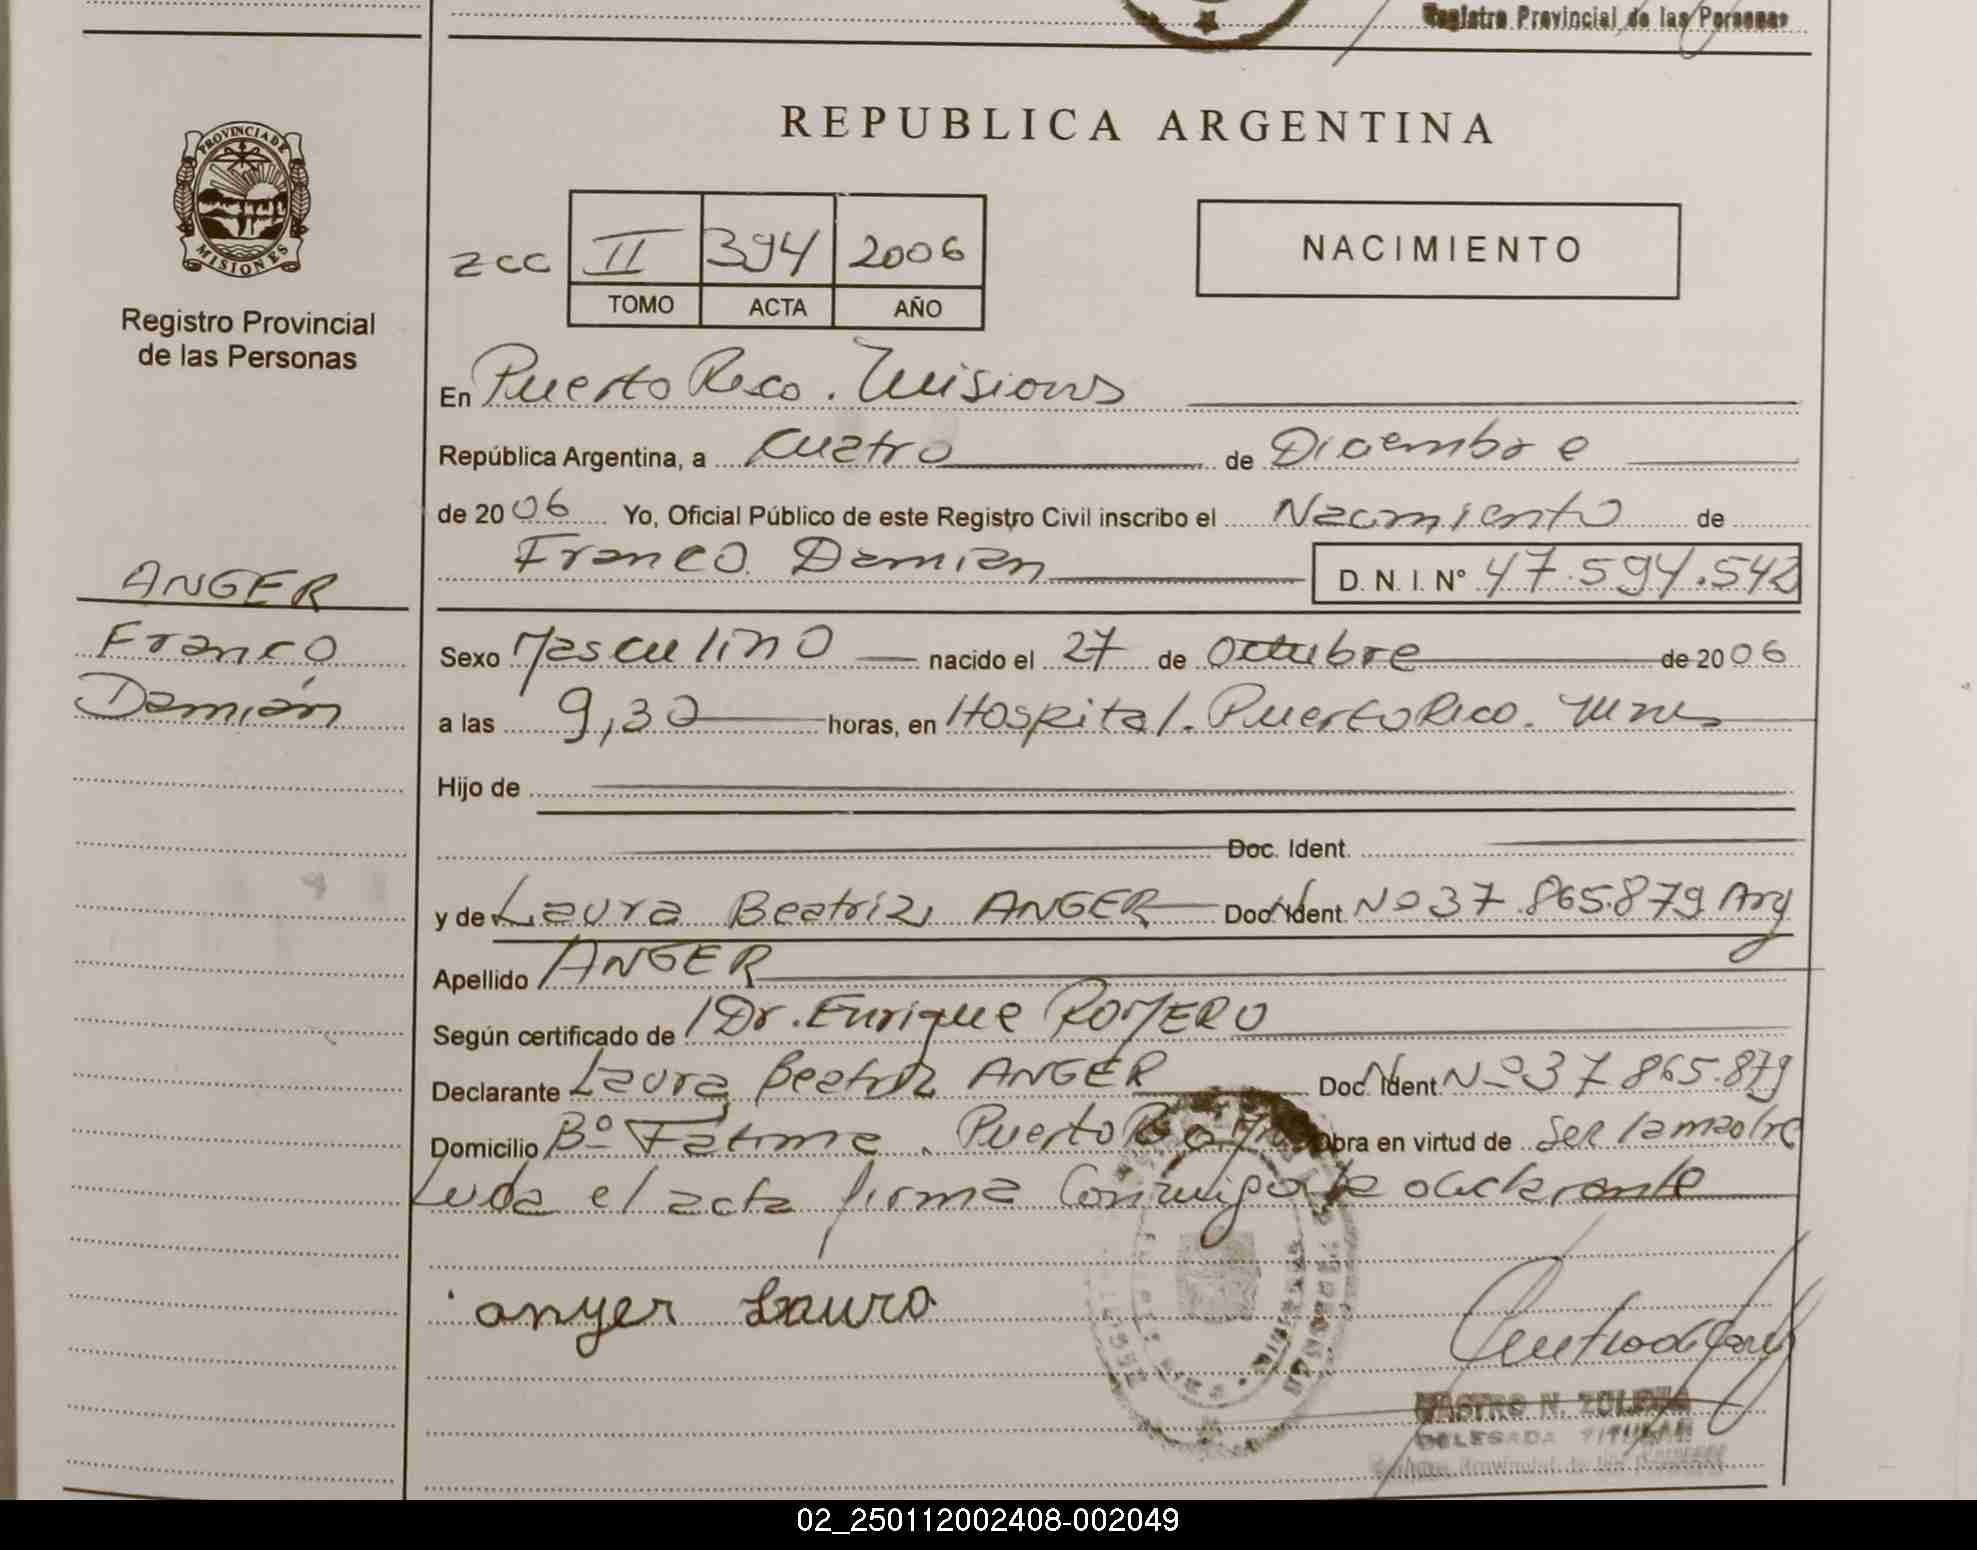 Registro Provincial de las Personas
PROVINCIA DE
MISIONES
Registro Provincial
de las Personas
REPUBLICA ARGENTINA
ZCC II 394 2006
TOMO ACTA AÑO
NACIMIENTO
En Puerto Rico. Misiones
República Argentina, a Cuatro de Diciembre
de 2006 Yo, Oficial Público de este Registro Civil inscribo el Nacimiento de
Franco Damian D. N. I. N° 47.594.542
ANGER
Franco
Damián
Sexo Masculino nacido el 27 de Octubre de 2006
a las 9,30 horas, en Hospital. Puerto Rico. Mnes
Hijo de
Doc. Ident.
y de Laura Beatriz ANGER Doc. Ident. Nº 37.865.879 Arg
Apellido ANGER
Según certificado de Dr. Enrique ROMERO
Declarante Laura Beatriz ANGER Doc. Ident. Nº 37.865.879
Domicilio Bº Fatima. Puerto Rico Obra en virtud de ser la madre
Leida el acta firma conmigo la declarante
anger Laura
CASTRO N.
DELEGADA TITULAR
Registro Provincial de las Personas
02_250112002408-002049